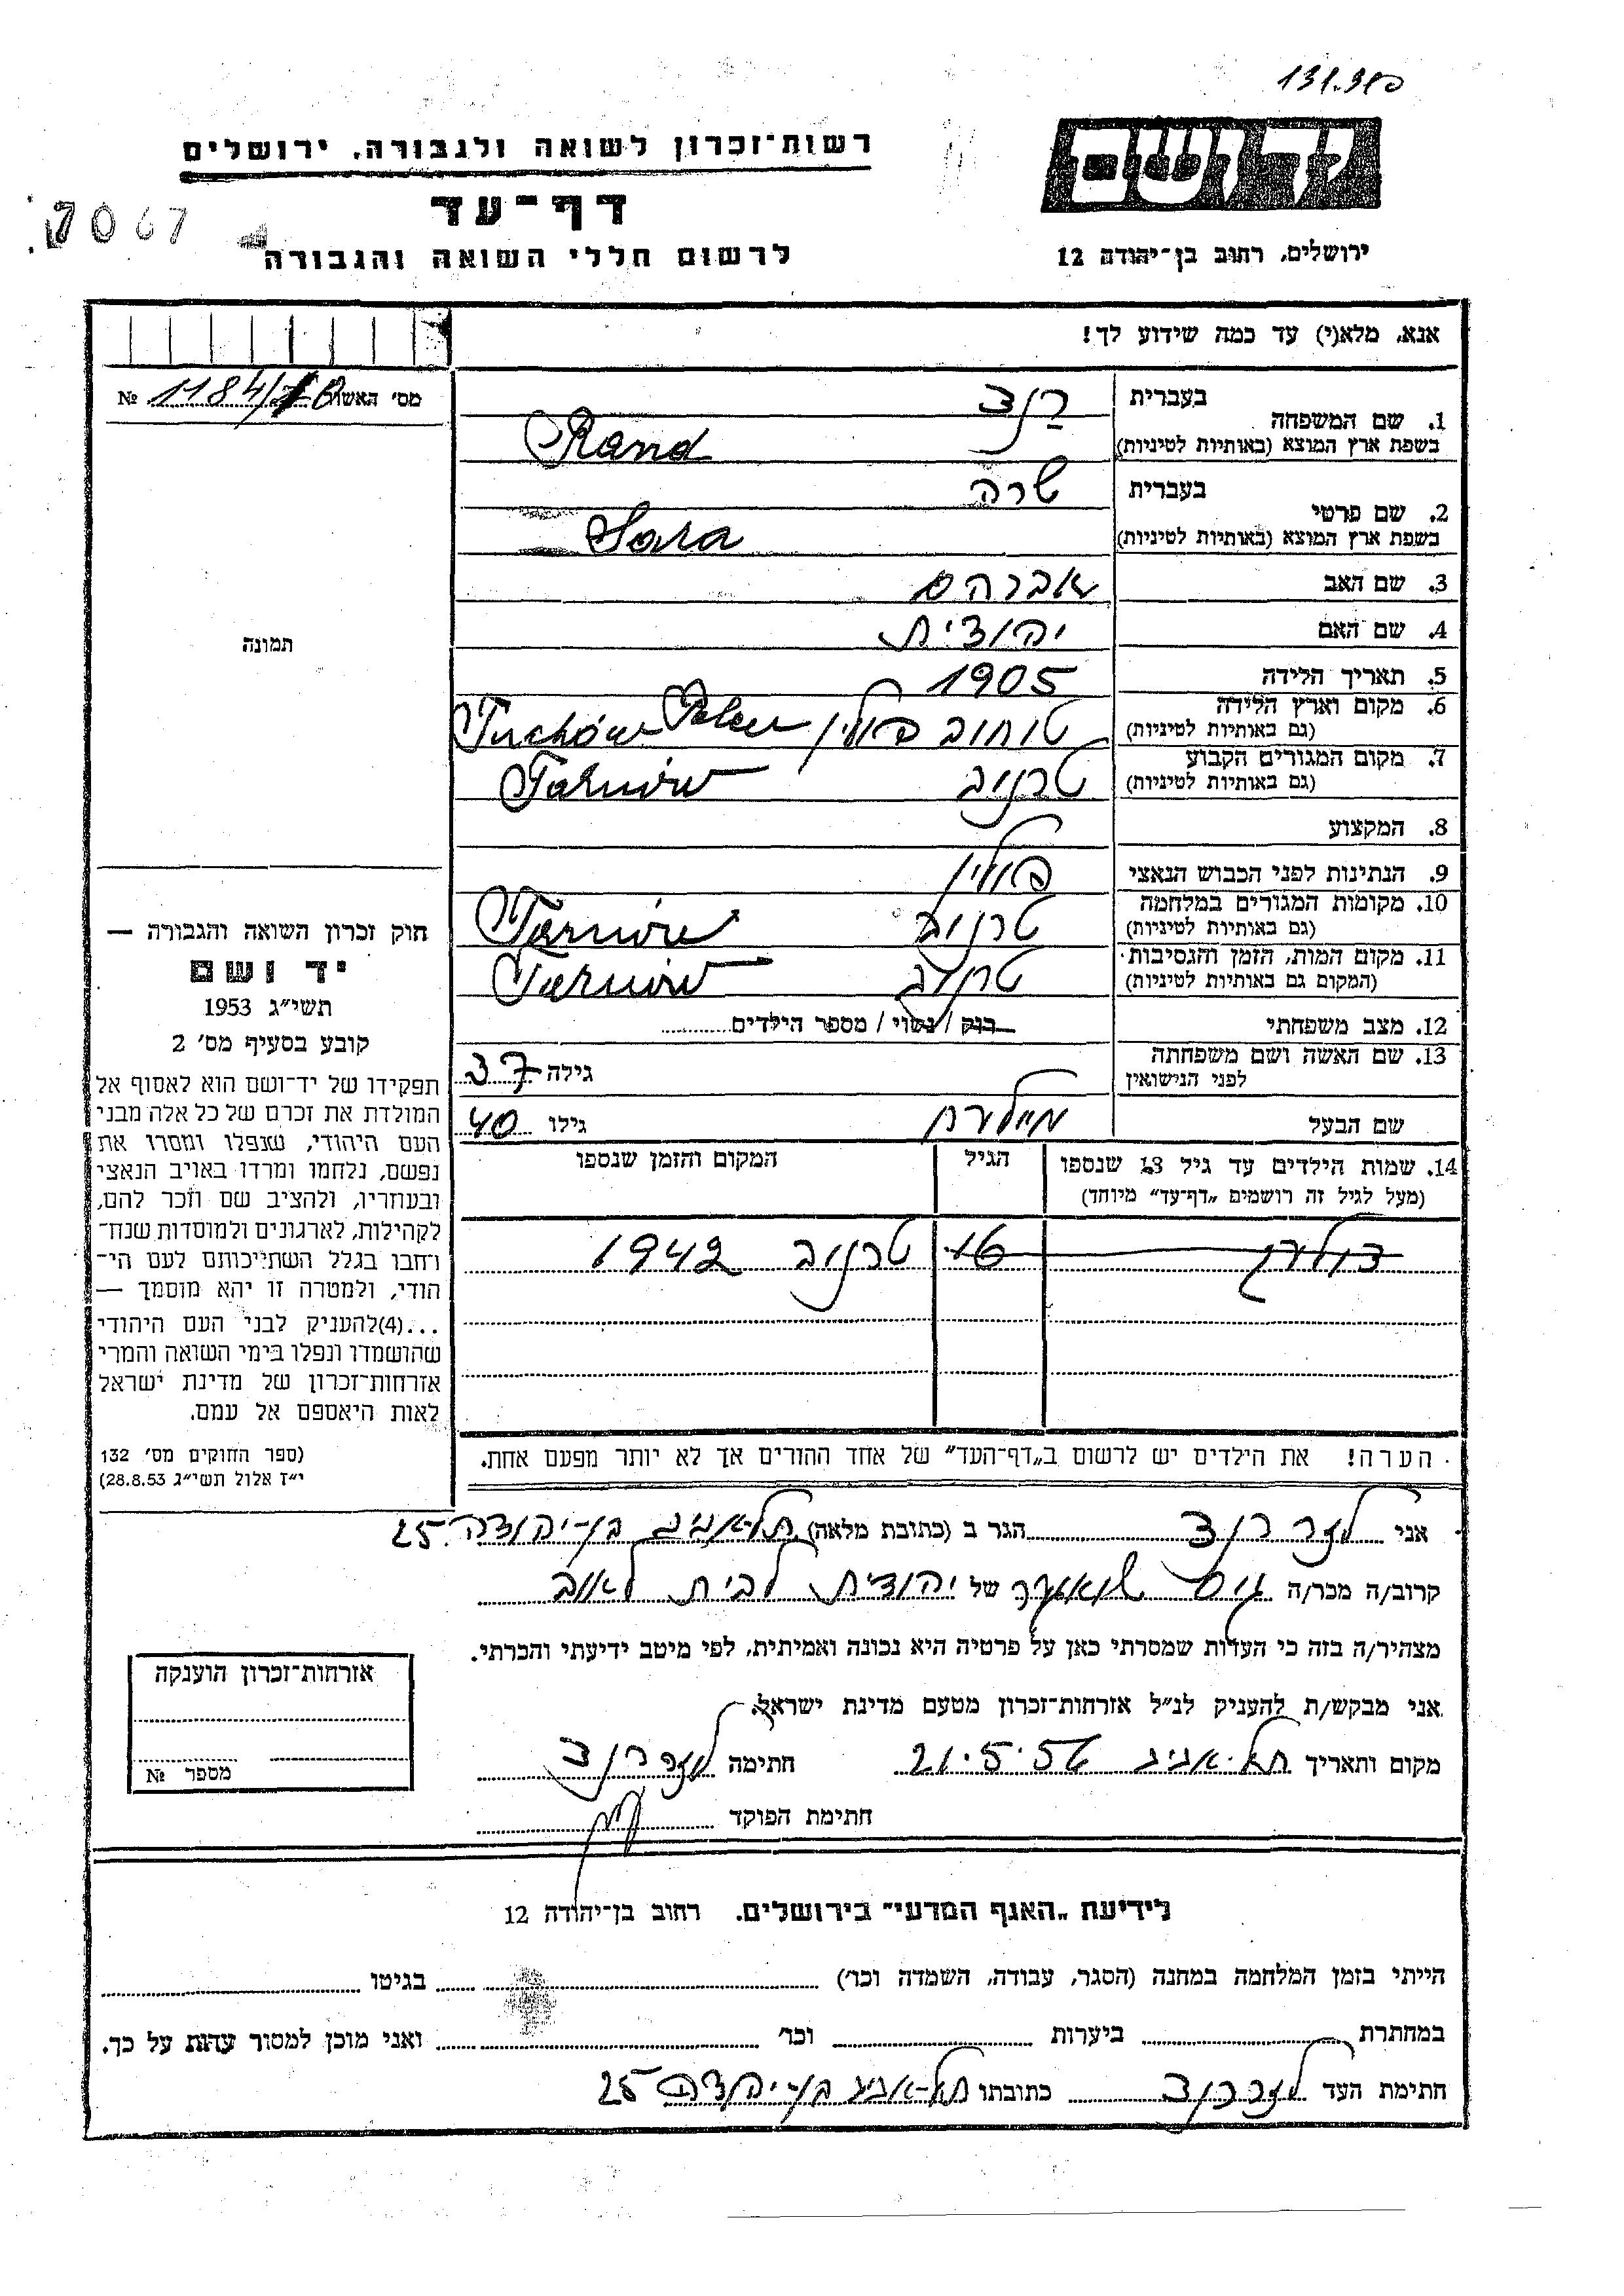 131.310
יד ושם
רשות־זכרון לשואה ולגבורה, ירושלים
דף־עד
לרשום חללי השואה והגבורה
ירושלים, רחוב בן־יהודה 12
7067
אנא, מלא(י) עד כמה שידוע לך!
מס׳ האשור 1184/ №
1. שם המשפחה
בעברית רנד
בשפת ארץ המוצא (באותיות לטיניות) Rand
2. שם פרטי
בעברית שרה
בשפת ארץ המוצא (באותיות לטיניות) Sara
3. שם האב אברהם
4. שם האם יהודית
5. תאריך הלידה 1905
6. מקום וארץ הלידה (גם באותיות לטיניות) טוחוב פולין Tuchów
7. מקום המגורים הקבוע (גם באותיות לטיניות) טרנוב Tarnów
8. המקצוע
9. הנתינות לפני הכבוש הנאצי פולין
10. מקומות המגורים במלחמה (גם באותיות לטיניות) טרנוב Tarnów
11. מקום המות, הזמן והנסיבות (המקום גם באותיות לטיניות) טרנוב Tarnów
12. מצב משפחתי רוק / נשוי / מספר הילדים
13. שם האשה ושם משפחתה לפני הנישואין גילה 37
שם הבעל גילו 40
14. שמות הילדים עד גיל 13 שנספו
(מעל לגיל זה רושמים „דף־עד״ מיוחד)
הגיל
המקום והזמן שנספו
16 טרנוב 1942
הערה! את הילדים יש לרשום ב„דף־העד״ של אחד ההורים אך לא יותר מפעם אחת.
תמונה
חוק זכרון השואה והגבורה —
יד ושם
תשי״ג 1953
קובע בסעיף מס׳ 2
תפקידו של יד־ושם הוא לאסוף אל
המולדת את זכרם של כל אלה מבני
העם היהודי, שנפלו ומסרו את
נפשם, נלחמו ומרדו באויב הנאצי
ובעוזריו, ולהציב שם וזכר להם,
לקהילות, לארגונים ולמוסדות שנח־
רחבו בגלל השתייכותם לעם הי־
הודי, ולמטרה זו יהא מוסמך —
...(4)להעניק לבני העם היהודי
שהושמדו ונפלו בימי השואה והמרי
אזרחות־זכרון של מדינת ישראל
לאות היאספם אל עמם.
(ספר החוקים מס׳ 132
י״ז אלול תשי״ג 28.8.53)
אני לזר רנד הגר ב (כתובת מלאה) תל-אביב בן-יהודה 25
קרוב/ה מכר/ה גיס של יהודית לבית
מצהיר/ה בזה כי העדות שמסרתי כאן על פרטיה היא נכונה ואמיתית, לפי מיטב ידיעתי והכרתי.
אני מבקש/ת להעניק לנ״ל אזרחות־זכרון מטעם מדינת ישראל.
מקום ותאריך תל-אביב 21.5.56 חתימה לזר רנד
חתימת הפוקד
אזרחות־זכרון הוענקה
מספר №
לידיעת „האגף המדעי״ בירושלים, רחוב בן־יהודה 12
הייתי בזמן המלחמה במחנה (הסגר, עבודה, השמדה וכו׳) בגיטו
במחתרת ביערות וכו׳ ואני מוכן למסור עדות על כך.
חתימת העד לזר רנד כתובתו תל-אביב בן-יהודה 25